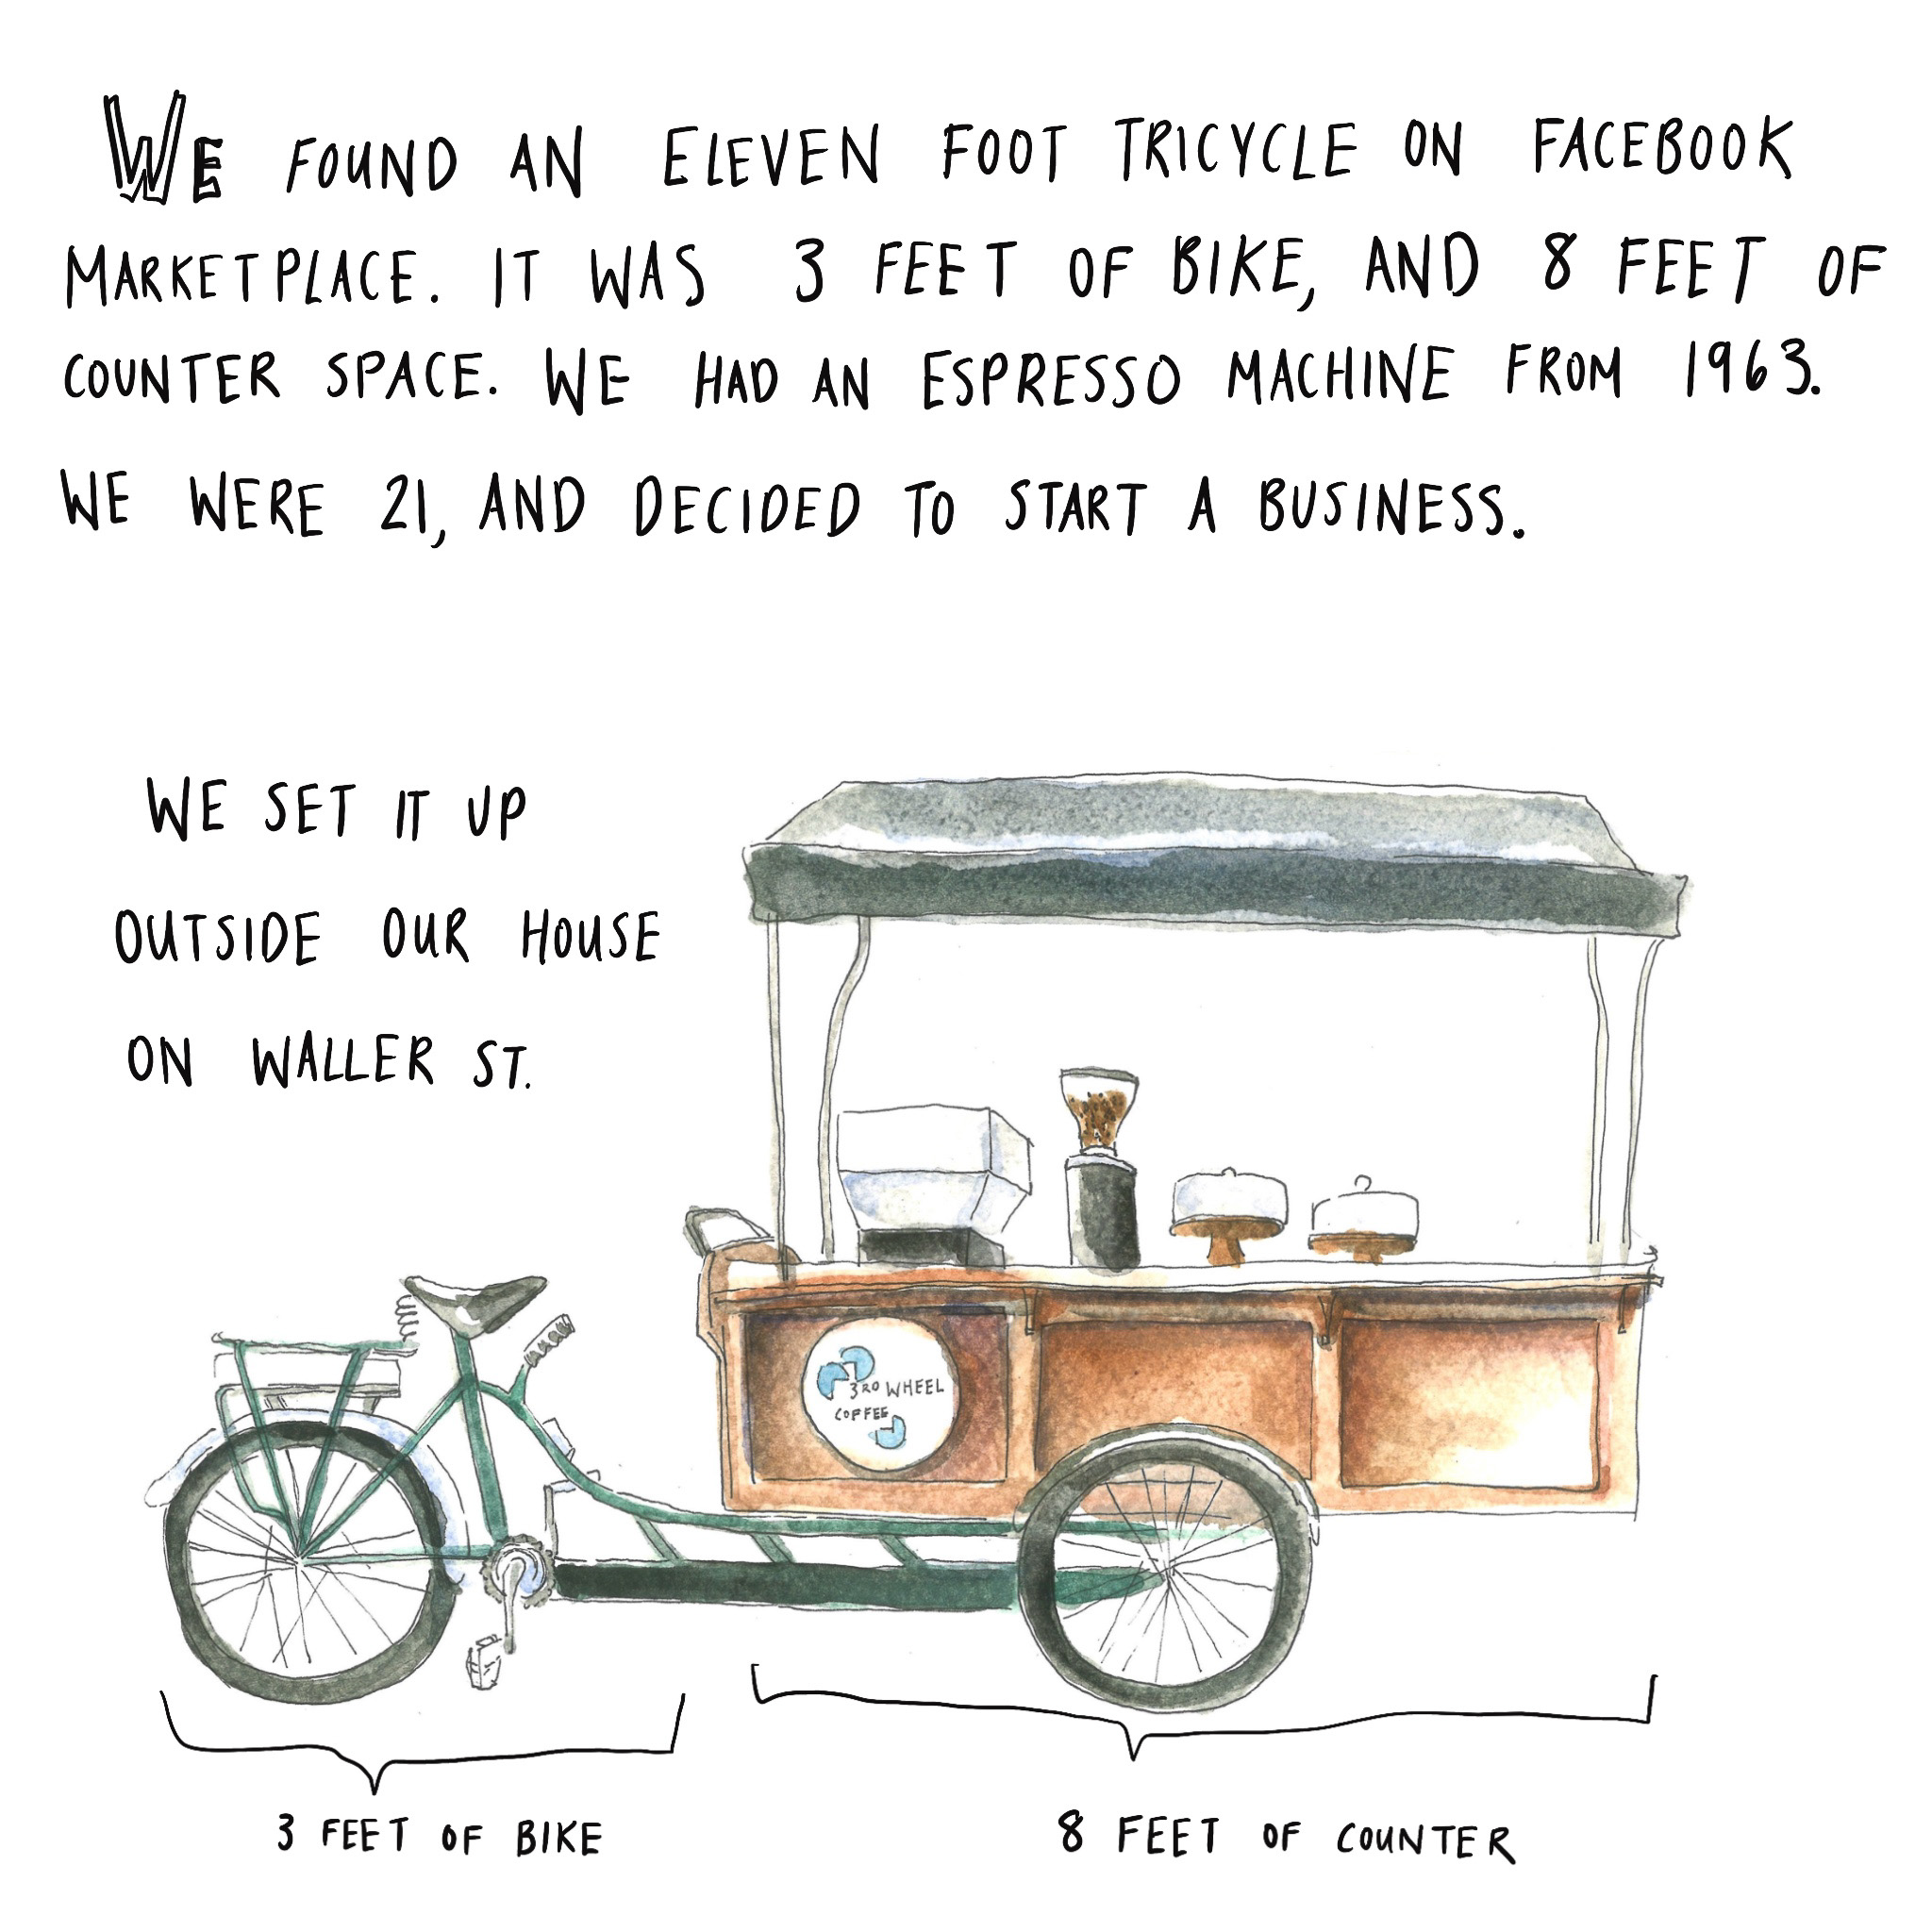 WE FOUND AN ELEVEN FOOT TRICYCLE ON FACEBOOK
MARKETPLACE. IT WAS 3 FEET OF BIKE, AND 8 FEET OF
COUNTER SPACE. WE HAD AN ESPRESSO MACHINE FROM 1963.
WE WERE 21, AND DECIDED TO START A BUSINESS.
WE SET IT UP
OUTSIDE OUR HOUSE
ON WALLER ST.
3RD WHEEL
COFFEE
3 FEET OF BIKE
8 FEET OF COUNTER